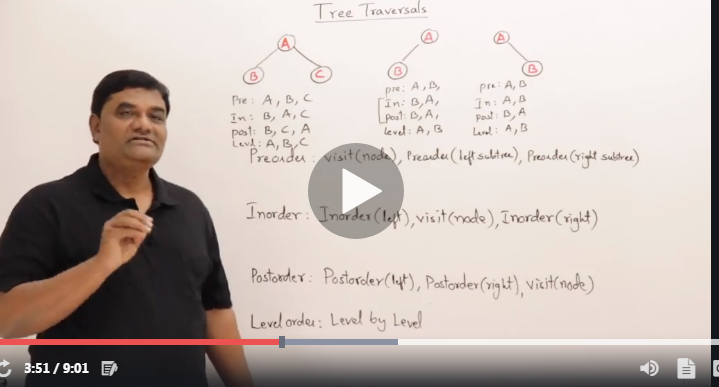 Tree Traversals
A
B C
Pre: A, B, C
In: B, A, C
post: B, C, A
Level: A, B, C
A
B
pre: A, B,
In: B, A,
post: B, A,
Level: A, B
A
B
pre: A, B
In: A, B
post: B, A
Level: A, B
Preorder: visit(node), Preorder(left subtree), Preorder(right subtree)
Inorder: Inorder(left), visit(node), Inorder(right)
Postorder: Postorder(left), Postorder(right), visit(node)
Levelorder: Level by Level
3:51 / 9:01